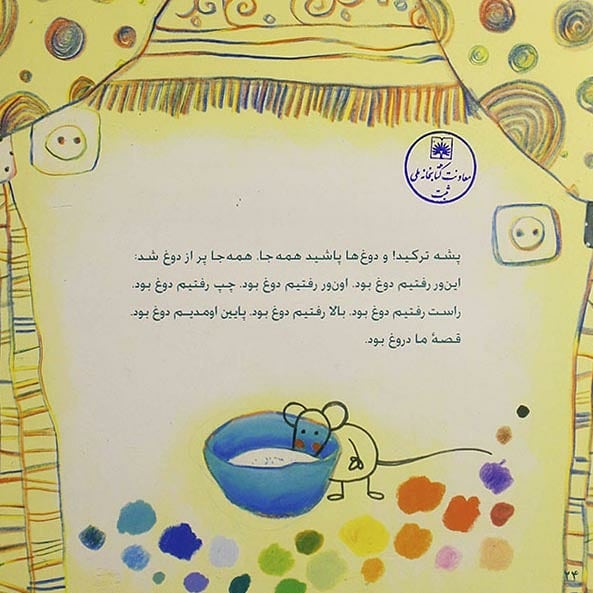 معاونت کتابخانه ملی
ثبت
پشه ترکید! و دوغ‌ها پاشید همه‌جا. همه‌جا پر از دوغ شد:
این‌ور رفتیم دوغ بود. اون‌ور رفتیم دوغ بود. چپ رفتیم دوغ بود.
راست رفتیم دوغ بود. بالا رفتیم دوغ بود. پایین اومدیم دوغ بود.
قصهٔ ما دروغ بود.
۲۴